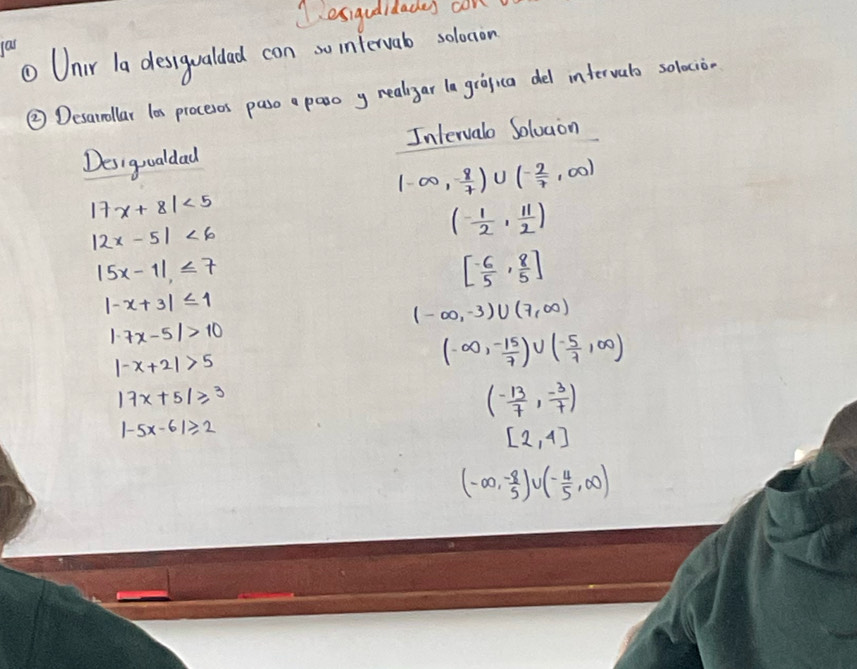 Desigualdades con
① Unir la desigualdad con su intervalo solución
② Desarrollar los procesos paso a paso y realizar la gráfica del intervalo solución.
Desigualdad
|7x + 8| < 5
|2x - 5| < 6
|5x - 1| ≤ 7
|-x + 3| ≤ 1
|-7x - 5| > 10
|-x + 2| > 5
|7x + 5| ≥ 3
|-5x - 6| ≥ 2
Intervalo Solución
(-∞, -8/7) ∪ (-2/7, ∞)
(-1/2, 11/2)
[-6/5, 8/5]
(-∞, -3) ∪ (7, ∞)
(-∞, -15/7) ∪ (-5/7, ∞)
(-13/7, -3/7)
[2, 4]
(-∞, -8/5) ∪ (-4/5, ∞)